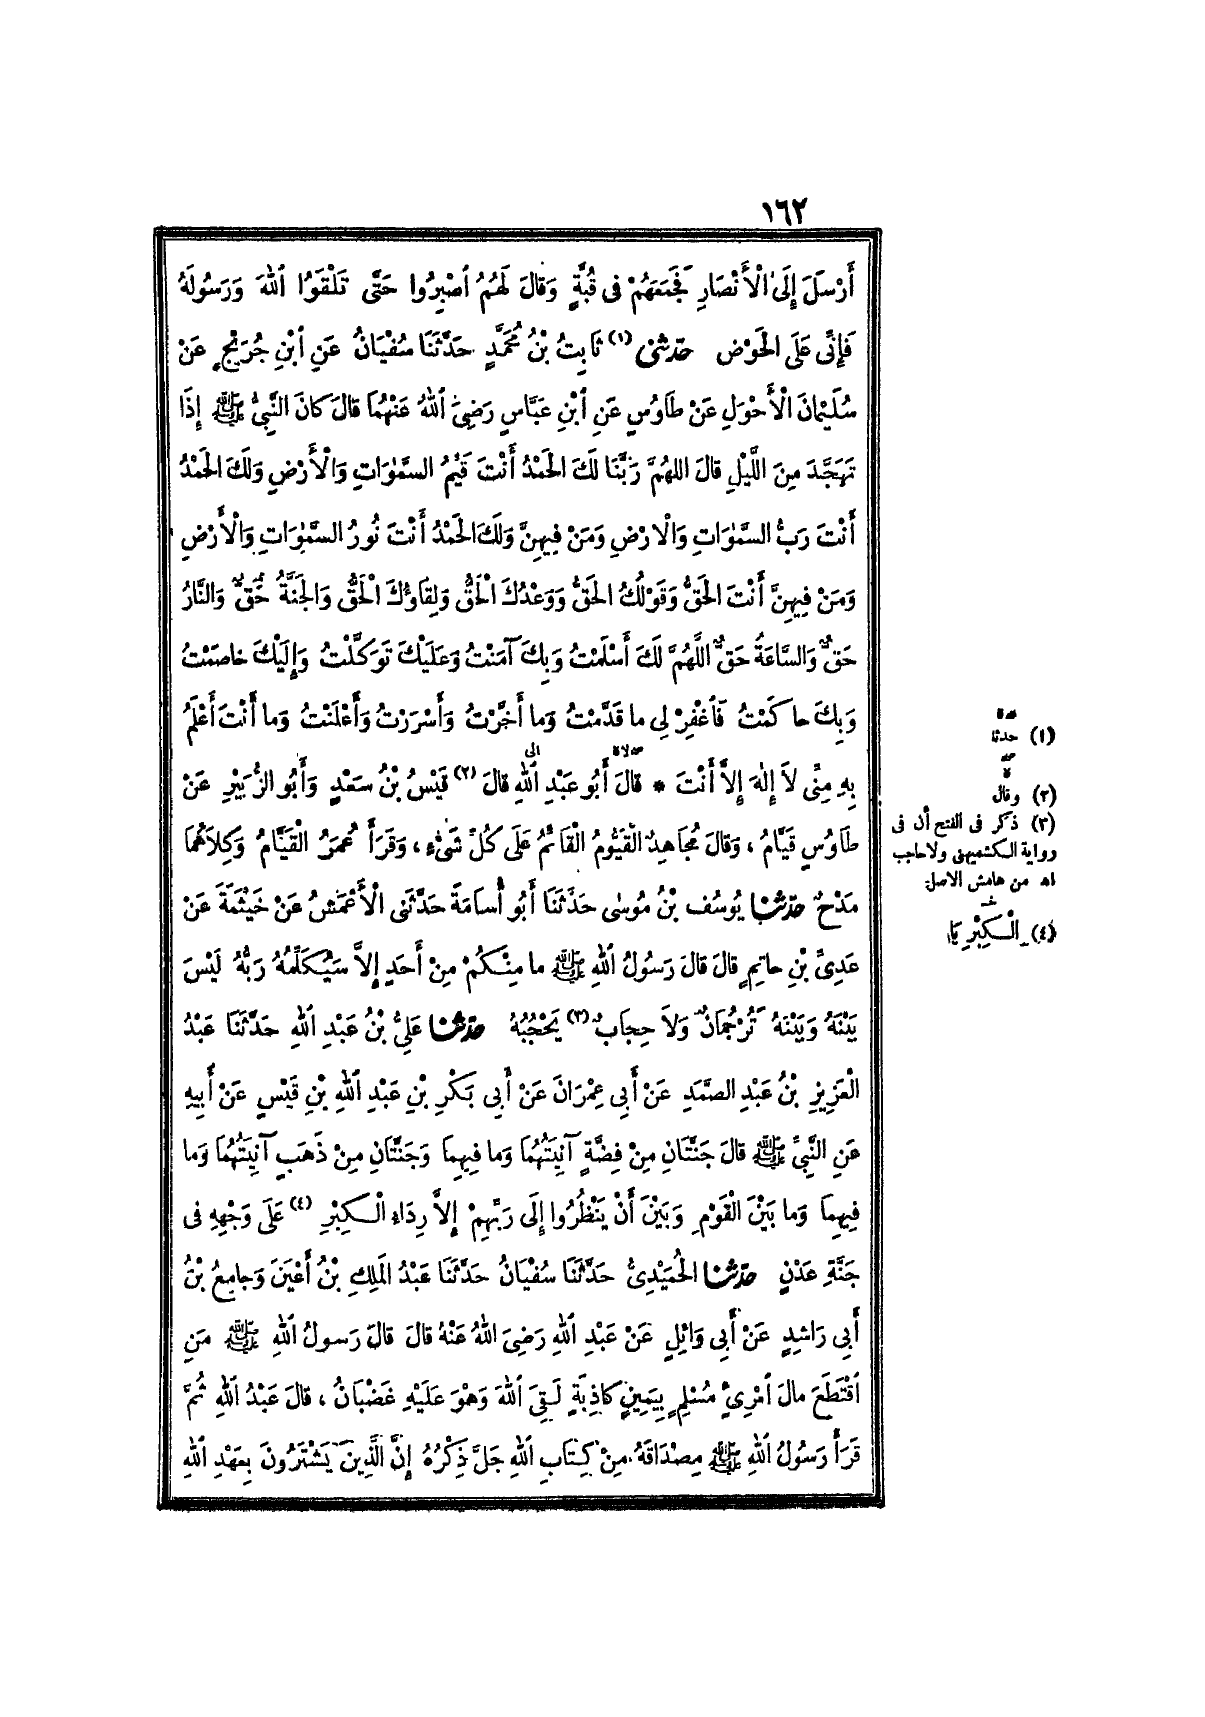 ١٦٢
أَرْسَلَ إِلَى الْأَنْصَارِ فَجَمَعَهُمْ فِى قُبَّةٍ وَقَالَ لَهُمُ اصْبِرُوا حَتَّى تَلْقَوُا اللهَ وَرَسُولَهُ
فَإِنِّى عَلَى الْحَوْضِ حَدَّثَنِى (١) ثَابِتُ بْنُ مُحَمَّدٍ حَدَّثَنَا سُفْيَانُ عَنِ ابْنِ جُرَيْجٍ عَنْ
سُلَيْمَانَ الْأَحْوَلِ عَنْ طَاوُسٍ عَنِ ابْنِ عَبَّاسٍ رَضِىَ اللهُ عَنْهُمَا قَالَ كَانَ النَّبِىُّ ﷺ إِذَا
تَهَجَّدَ مِنَ اللَّيْلِ قَالَ اللهُمَّ رَبَّنَا لَكَ الْحَمْدُ أَنْتَ قَيِّمُ السَّمٰوَاتِ وَالْأَرْضِ وَلَكَ الْحَمْدُ
أَنْتَ رَبُّ السَّمٰوَاتِ وَالْارْضِ وَمَنْ فِيهِنَّ وَلَكَ الْحَمْدُ أَنْتَ نُورُ السَّمٰوَاتِ وَالْأَرْضِ
وَمَنْ فِيهِنَّ أَنْتَ الْحَقُّ وَقَوْلُكَ الْحَقُّ وَوَعْدُكَ الْحَقُّ وَلِقَاؤُكَ الْحَقُّ وَالْجَنَّةُ حَقٌّ وَالنَّارُ
حَقٌّ وَالسَّاعَةُ حَقٌّ اللَّهُمَّ لَكَ أَسْلَمْتُ وَبِكَ آمَنْتُ وَعَلَيْكَ تَوَكَّلْتُ وَإِلَيْكَ خَاصَمْتُ
وَبِكَ حَاكَمْتُ فَاغْفِرْ لِى مَا قَدَّمْتُ وَمَا أَخَّرْتُ وَأَسْرَرْتُ وَأَعْلَنْتُ وَمَا أَنْتَ أَعْلَمُ
بِهِ مِنِّى لاَ إِلٰهَ إِلاَّ أَنْتَ * قَالَ أَبُو عَبْدِ اللهِ قَالَ (٢) قَيْسُ بْنُ سَعْدٍ وَأَبُو الزُّبَيْرِ عَنْ
طَاوُسٍ قَيَّامُ ، وَقَالَ مُجَاهِدٌ الْقَيُّومُ الْقَائِمُ عَلَى كُلِّ شَىْءٍ ، وَقَرَأَ عُمَرُ الْقَيَّامُ وَكِلاَهُمَا
مَدْحٌ حَدَّثَنَا يُوسُفُ بْنُ مُوسٰى حَدَّثَنَا أَبُو أُسَامَةَ حَدَّثَنِى الْأَعْمَشُ عَنْ خَيْثَمَةَ عَنْ
عَدِىِّ بْنِ حَاتِمٍ قَالَ قَالَ رَسُولُ اللهِ ﷺ مَا مِنْكُمْ مِنْ أَحَدٍ إِلاَّ سَيُكَلِّمُهُ رَبُّهُ لَيْسَ
بَيْنَهُ وَبَيْنَهُ تُرْجُمَانٌ وَلاَ حِجَابٌ (٣) يَحْجُبُهُ حَدَّثَنَا عَلِىُّ بْنُ عَبْدِ اللهِ حَدَّثَنَا عَبْدُ
الْعَزِيزِ بْنُ عَبْدِ الصَّمَدِ عَنْ أَبِى عِمْرَانَ عَنْ أَبِى بَكْرِ بْنِ عَبْدِ اللهِ بْنِ قَيْسٍ عَنْ أَبِيهِ
عَنِ النَّبِىِّ ﷺ قَالَ جَنَّتَانِ مِنْ فِضَّةٍ آنِيَتُهُمَا وَمَا فِيهِمَا وَجَنَّتَانِ مِنْ ذَهَبٍ آنِيَتُهُمَا وَمَا
فِيهِمَا وَمَا بَيْنَ الْقَوْمِ وَبَيْنَ أَنْ يَنْظُرُوا إِلَى رَبِّهِمْ إِلاَّ رِدَاءُ الْكِبْرِ (٤) عَلَى وَجْهِهِ فِى
جَنَّةِ عَدْنٍ حَدَّثَنَا الْحُمَيْدِىُّ حَدَّثَنَا سُفْيَانُ حَدَّثَنَا عَبْدُ الْمَلِكِ بْنُ أَعْيَنَ وَجَامِعُ بْنُ
أَبِى رَاشِدٍ عَنْ أَبِى وَائِلٍ عَنْ عَبْدِ اللهِ رَضِىَ اللهُ عَنْهُ قَالَ قَالَ رَسولُ اللهِ ﷺ مَنِ
اقْتَطَعَ مَالَ امْرِئٍ مُسْلِمٍ بِيَمِينٍ كَاذِبَةٍ لَقِىَ اللهَ وَهْوَ عَلَيْهِ غَضْبَانُ ، قَالَ عَبْدُ اللهِ ثُمَّ
قَرَأَ رَسُولُ اللهِ ﷺ مِصْدَاقَهُ مِنْ كِتَابِ اللهِ جَلَّ ذِكْرُهُ إِنَّ الَّذِينَ يَشْتَرُونَ بِعَهْدِ اللهِ
(١) حدثنا
(٢) وقال
(٣) ذكر فى الفتح أن فى
رواية الكشميهنى ولاحاجب
اه من هامش الاصل
(٤) الْكِبْرِيَا